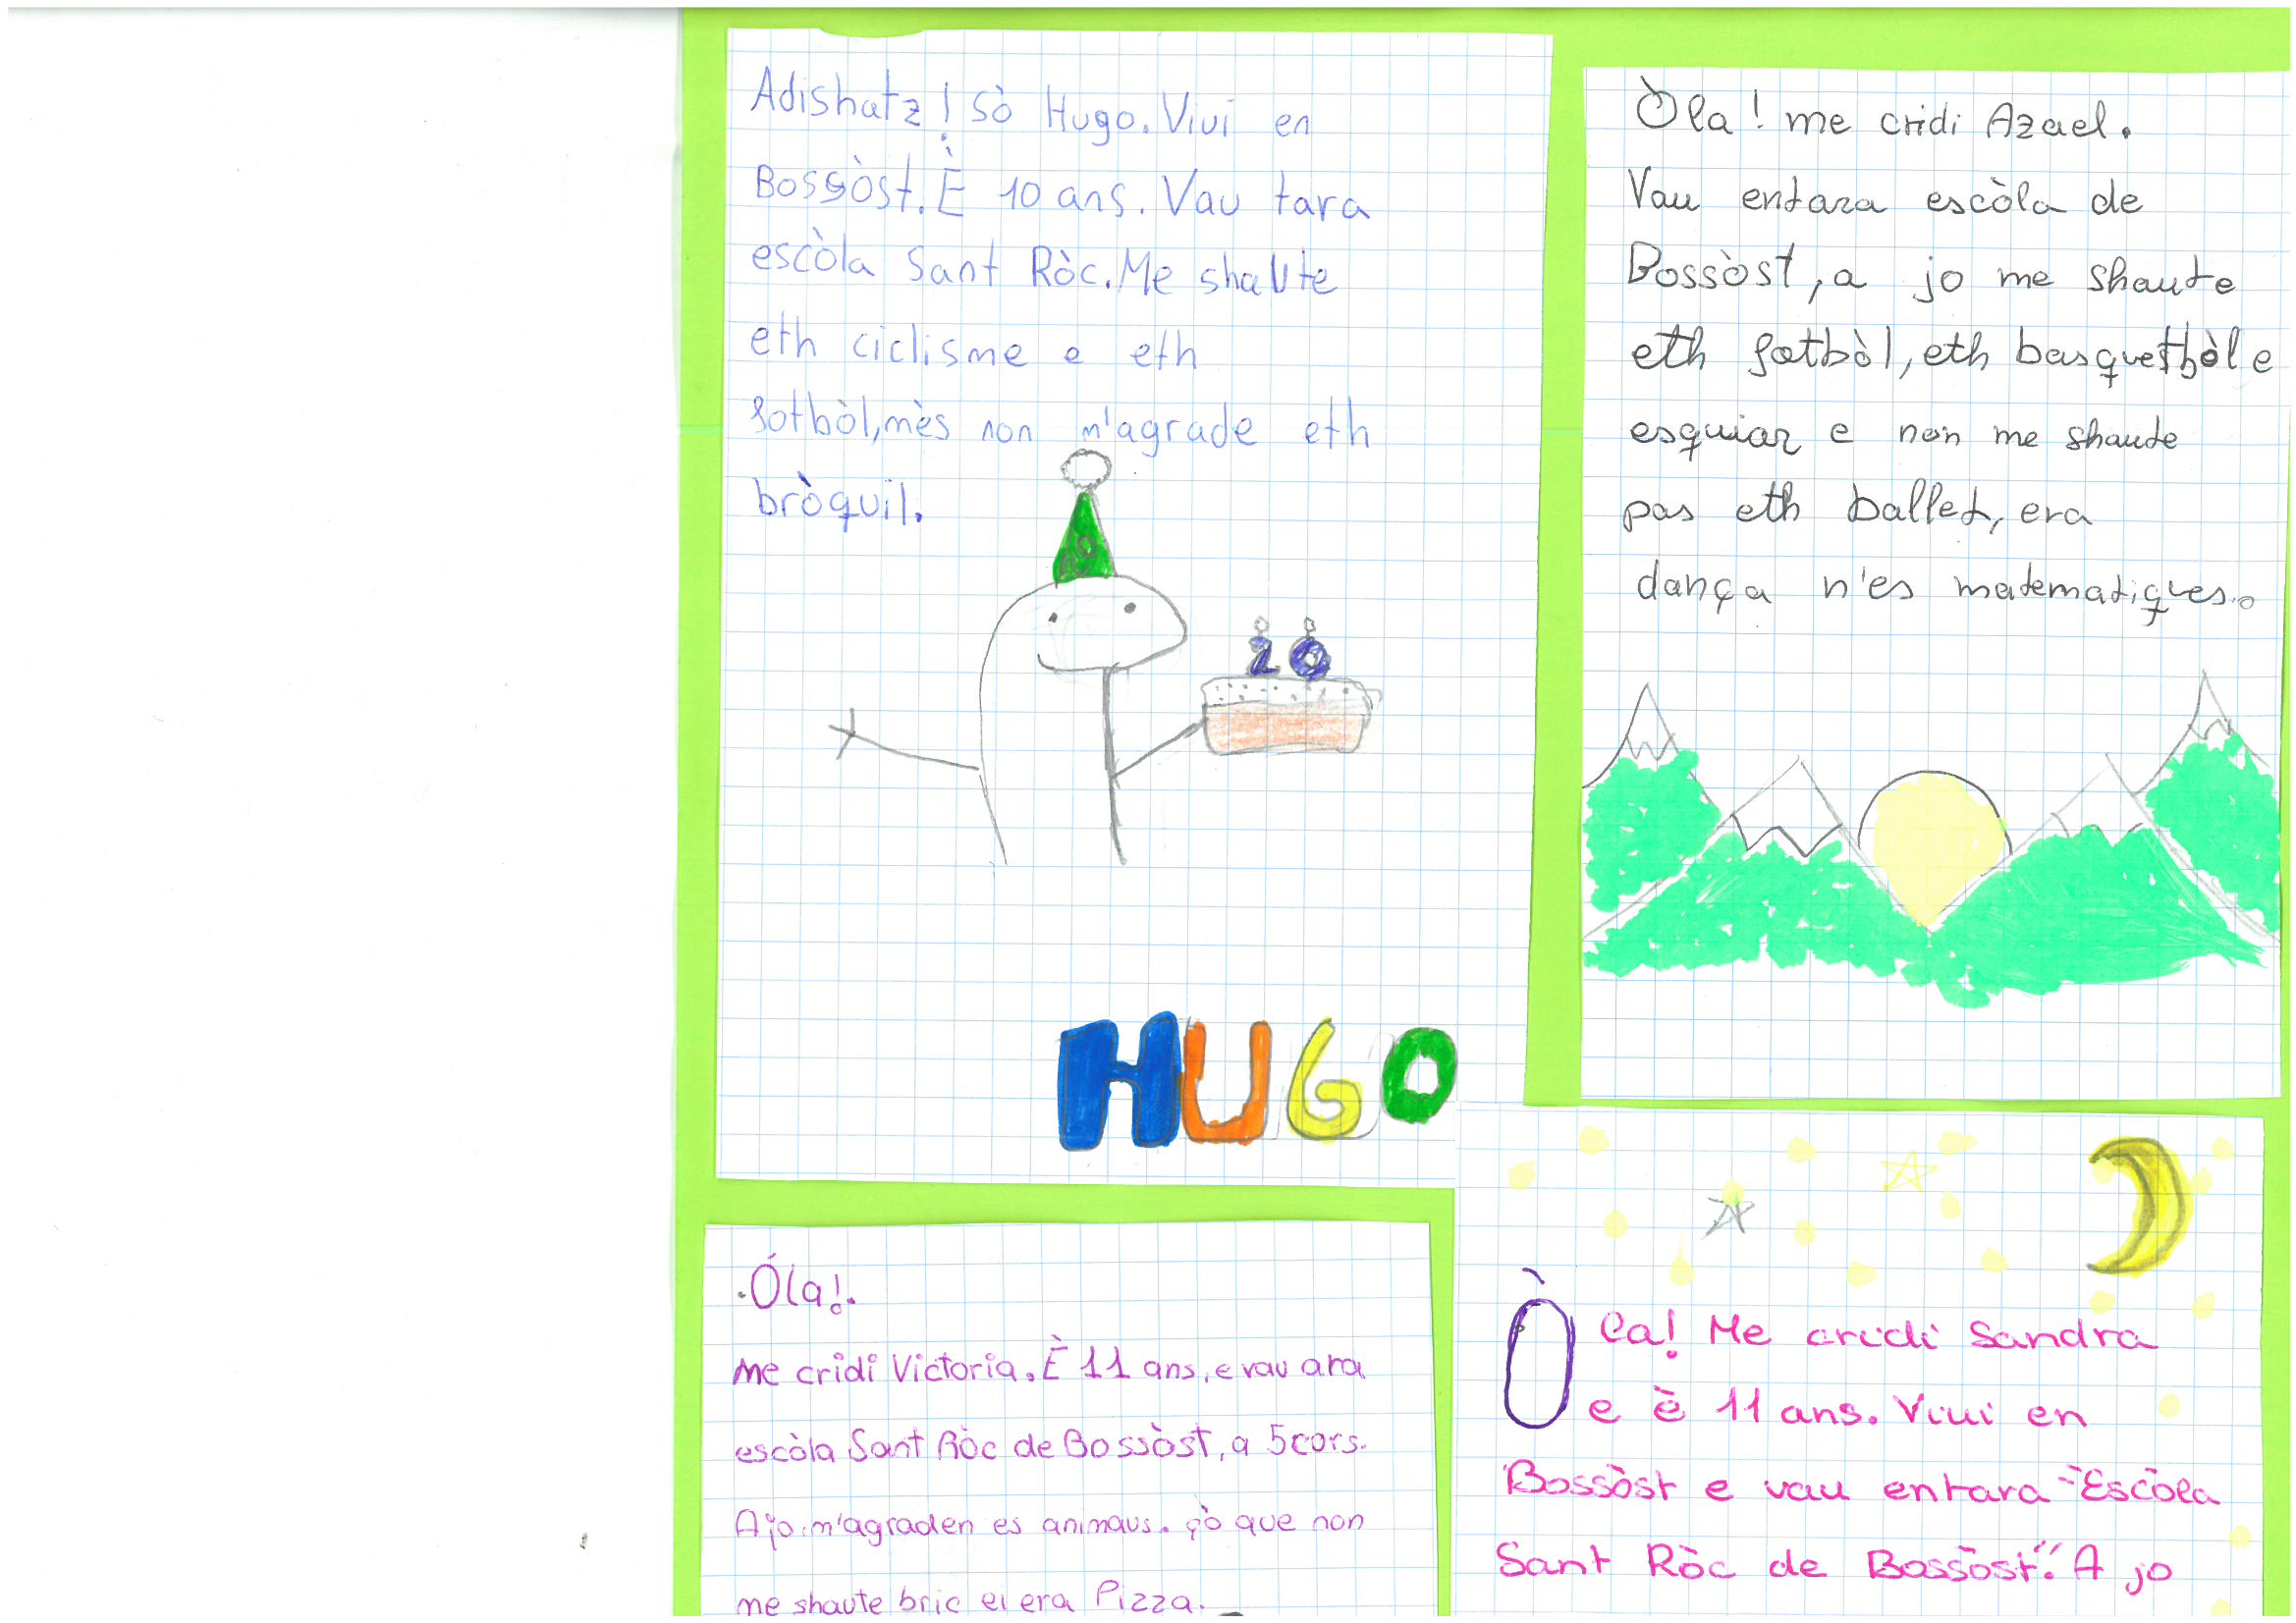 Adishatz! sò Hugo. Vivi en
Bossòst. È 10 ans. Vau tara
escòla Sant Ròc. Me shaute
eth ciclisme e eth
fotbòl, mès non m'agrade eth
bròquil.
10
HUGO
Òla! me cridi Azael.
Vau entara escòla de
Bossòst, a jo me shaute
eth fotbòl, eth basquetbòl e
esquiar e non me shaute
pas eth ballet, era
dança n'es matematiques.
.Óla!.
me cridi Victoria. È 11 ans, e vau ara
escòla Sant Ròc de Bossòst, a 5 cors.
A jo m'agraden es animaus. çò que non
me shaute bric ei era Pizza.
Òla! Me cridi Sandra
e è 11 ans. Vivi en
Bossòst e vau entara "Escòla
Sant Ròc de Bossòst". A jo